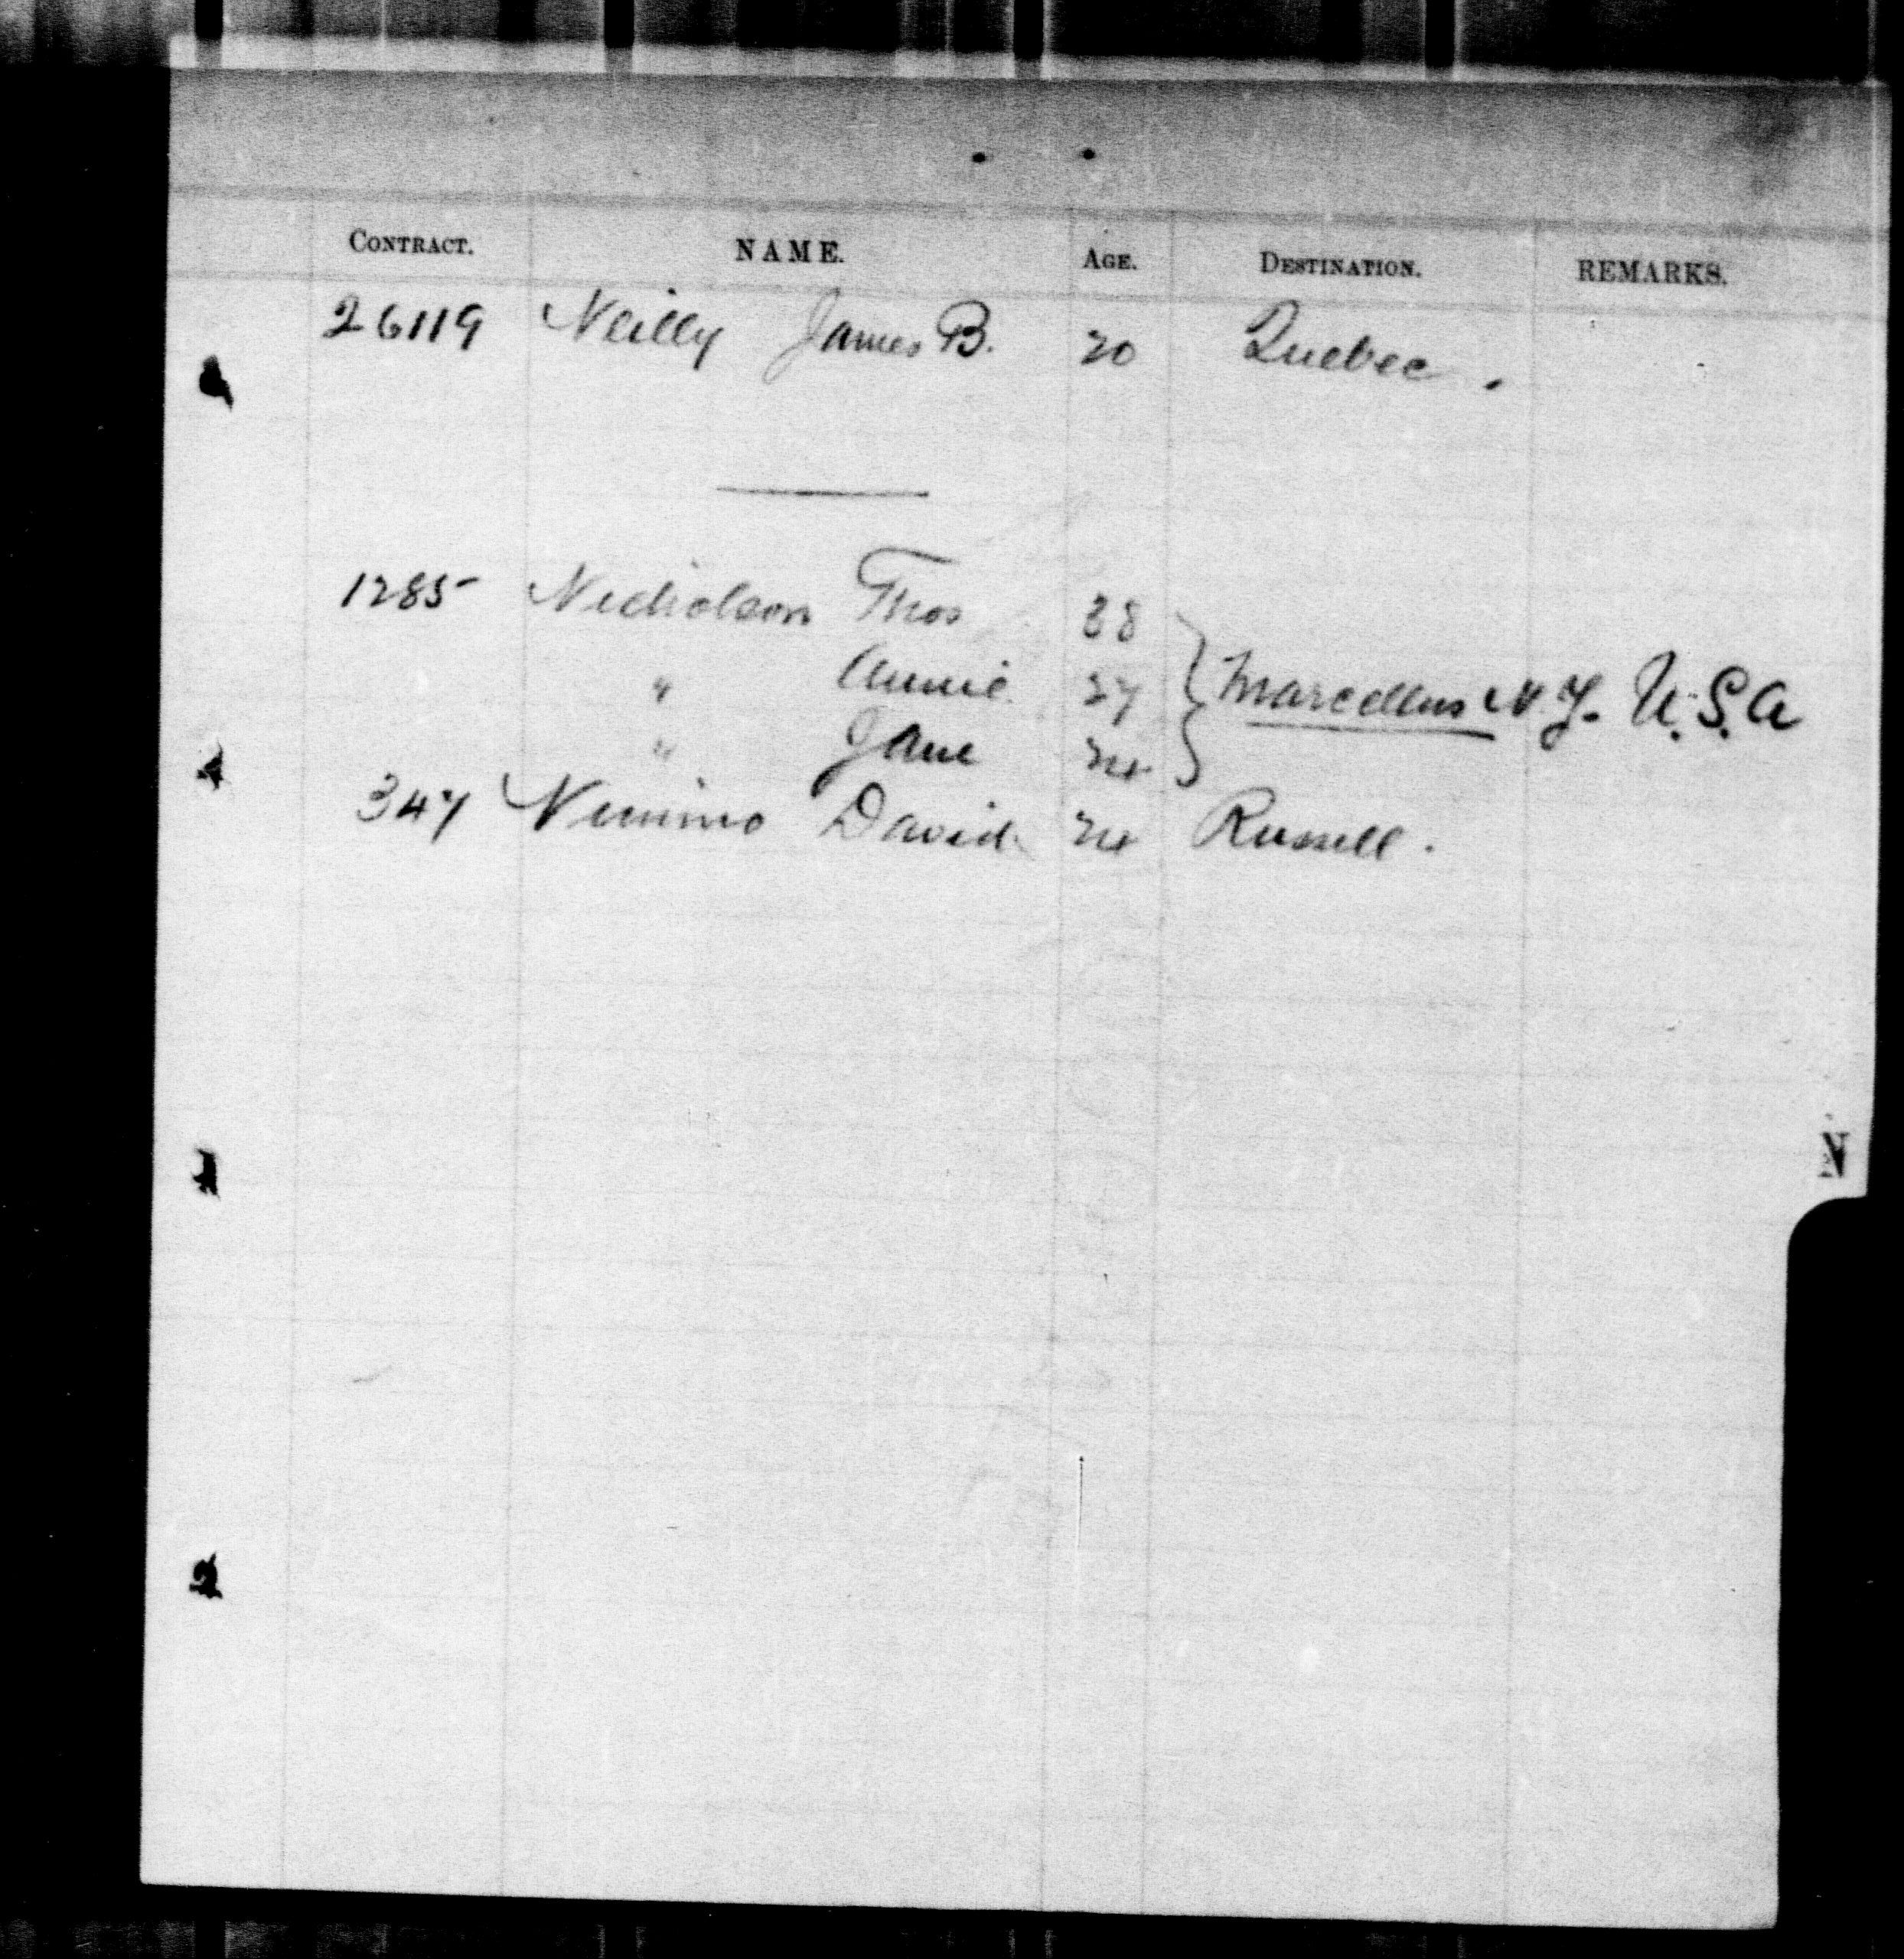 CONTRACT. NAME. AGE. DESTINATION. REMARKS.
26119 Neilly James B. 20 Quebec.
1285 Nicholson Thos 38
" Annie 27 Marcellus N.Y. U.S.A
" Jane 24
347 Nimmo David 24 Russell.
N